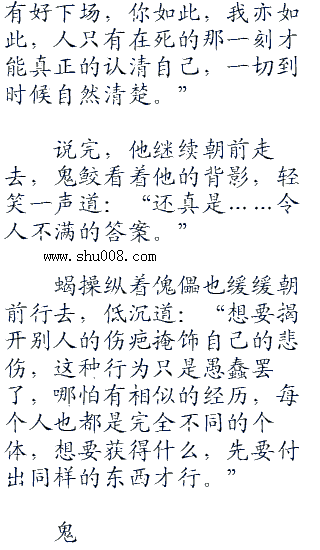 有好下场，你如此，我亦如
此，人只有在死的那一刻才
能真正的认清自己，一切到
时候自然清楚。”
说完，他继续朝前走
去，鬼鲛看着他的背影，轻
笑一声道：“还真是……令
人不满的答案。”
www.shu008.com
蝎操纵着傀儡也缓缓朝
前行去，低沉道：“想要揭
开别人的伤疤掩饰自己的悲
伤，这种行为只是愚蠢罢
了，哪怕有相似的经历，每
个人也都是完全不同的个
体，想要获得什么，先要付
出同样的东西才行。”
鬼